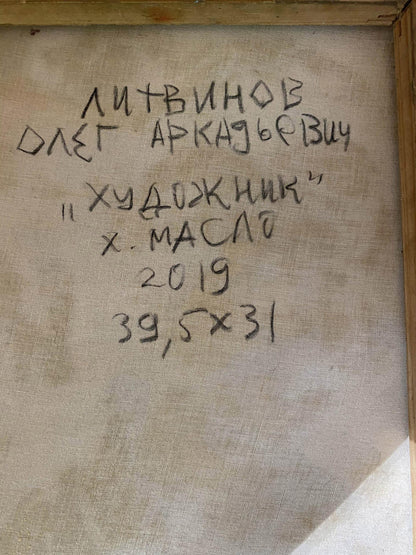 ЛИТВИНОВ
ОЛЕГ АРКАДЬЕВИЧ
„ХУДОЖНИК"
Х. МАСЛО
2019
39,5х31